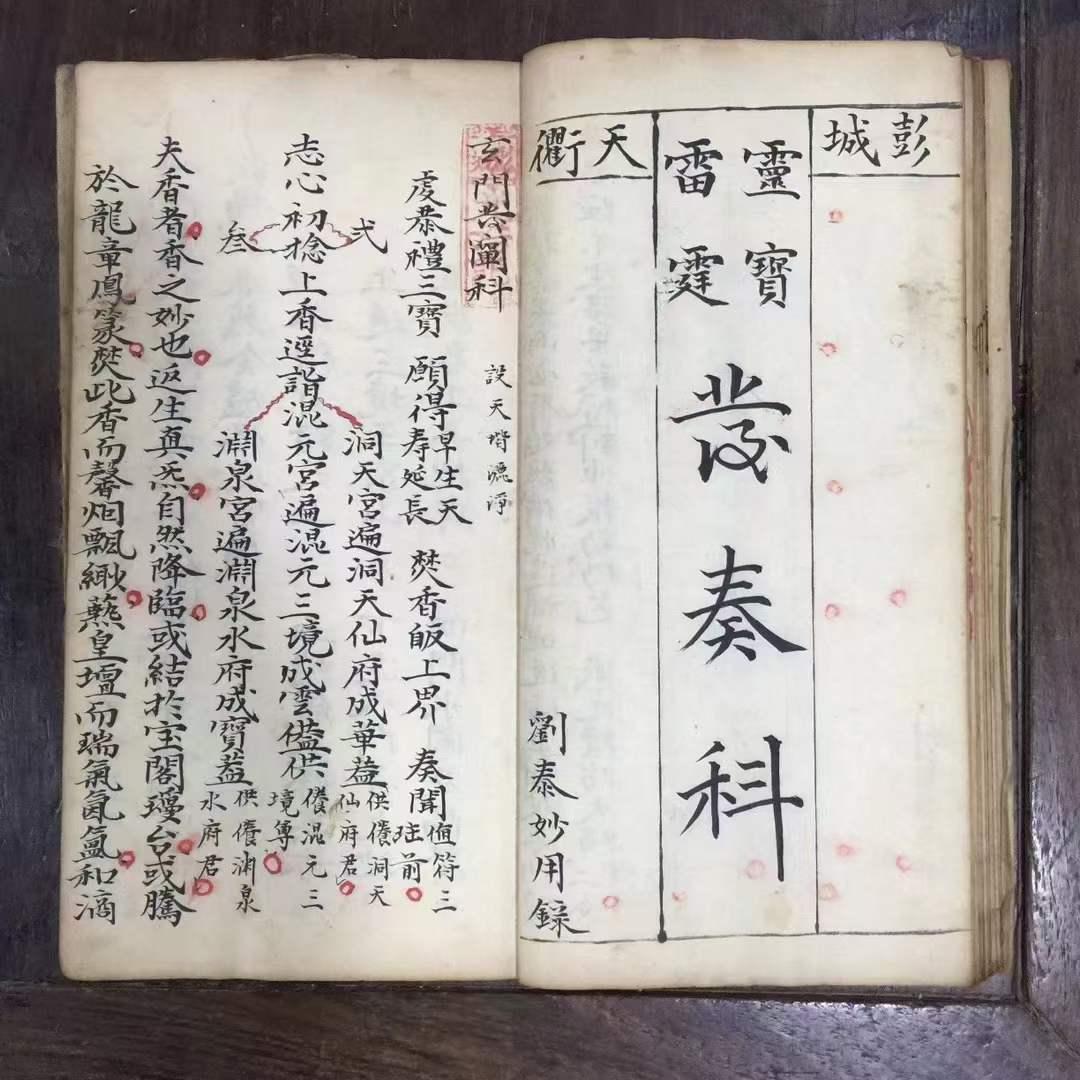 彭城
靈寶
雷霆
發奏科
天衢
劉泰妙用錄
玄門發闡科
設天堦灑淨
虔恭禮三寶 願得早生天寿延長 焚香皈上界 奏聞值符三 前
弍 洞天宮遍洞天仙府成華葢供養洞天仙府君
志心初捻上香逕詣混元宮遍混元三境成雲葢供養混元三境尊
叁 淵泉宮遍淵泉水府成寶葢供養淵泉水府君
夫香者香之妙也返生真炁自然降臨或結扵宝閣瓊台或騰
於龍章鳳篆焚此香而馨烟飄緲爇皇壇而瑞氣氤氳和滴